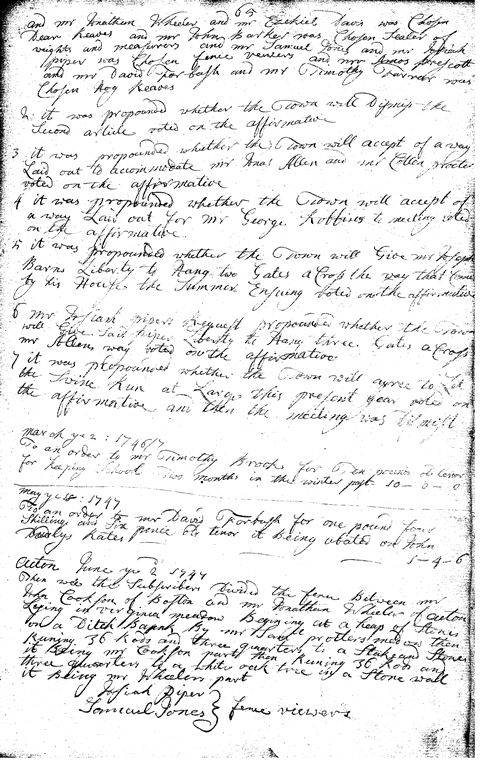 65
and mr Jonathan Wheeler and mr Ezekiel Davis was Chosen
Dear Reaves and mr John Barker was Chosen Sealer of
weights and measurers and mr Samuel Jones and mr Josiah
piper was Chosen fence vewers and mr Amos prescott
and mr David forbush and mr Timothy Farrar was
Chosen Hog Reaves
2 it was propounded whether the Town will Dismiss the
Second article voted on the affirmative
3 it was propounded whether the Town will accept of a way
Laid out to accommodate mr Jonas Allen and mr Cotten procter
voted on the affirmative
4 it was propounded whether the Town will accept of
a way Laid out for mr George Robbins to meeting voted
on the affirmative
5 it was propounded whether the Town will Give mr Joseph
Barns Liberty to Hang two Gates aCross the way that Come
by his House the Summer Ensuing voted on the affirmative
6 mr Josiah pipers Request propounded whether the Town
will Give Said piper Liberty to Hang three Gates a Cross
mr Allens way voted on the affirmative
7 it was propounded whether the Town will agree to Let
the Swine Run at Large this present year voted on
the affirmative and then the meeting was Dismist
march ye 2 : 1746/7
To an order to mr Timothy Brook for Ten pounds old tenor
for keeping School Two months in the winter past 10-0-0
may ye : 1747
To an order to mr David Forbush for one pound four
Shillings and Six pence old tenor it Being abated on John
Rates 1-4-6
Acton June ye 2 1747
Then we the Subscribers Divided the fence Between mr
John Cookson of Boston and mr Jonathan Wheeler of acton
Lying in virginia meadow Begining at a heap of Stones
on a Ditch Bank By mr procters medow then
Runing 36 Rods and three quarters to a Stake and Stones
it Being mr Cookson part then Runing 36 Rods and
three quarters to a white oak tree in a Stone wall
it Being mr Wheelers part
Josiah Piper
Samuel Jones } fence viewers